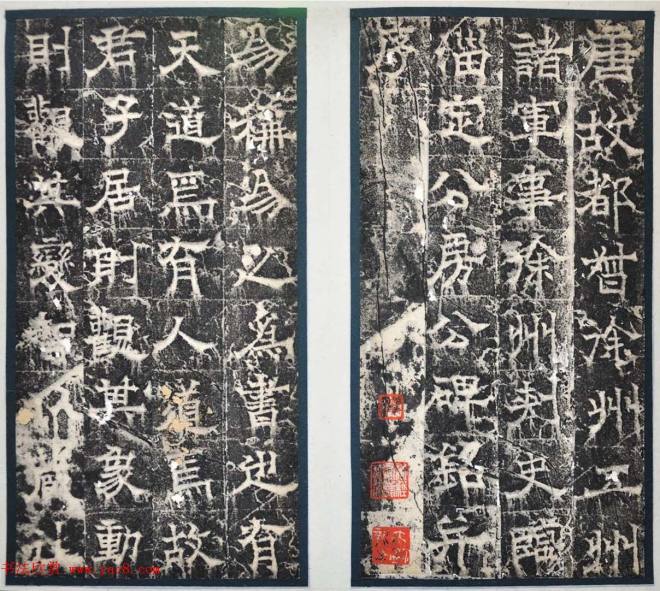 唐故都督徐州五州
諸軍事徐州刺史臨
淄定公房公碑銘并
序
易稱易之為書也有
天道焉有人道焉故
君子居則觀其象動
則觀其變
书法欣赏 www.yac8.com